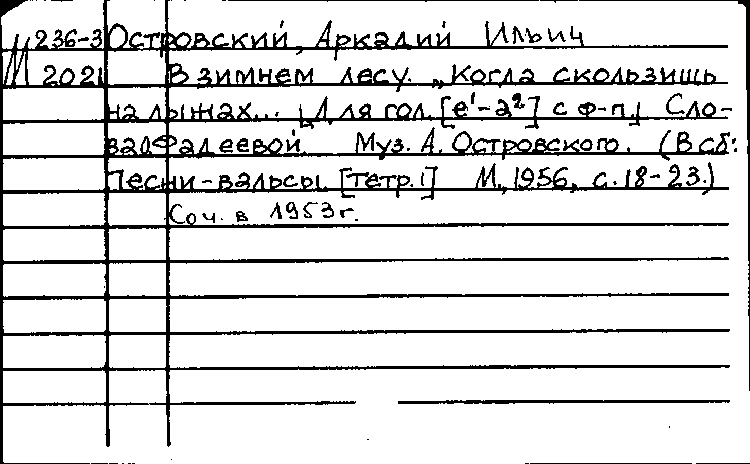 М 236-3 Островский, Аркадий Ильич
2021 В зимнем лесу. „Когда скользишь
на лыжах... [Для гол. [e¹-a²] с ф-п.] Сло-
ва О. Фадеевой. Муз. А. Островского. (В сб:
Песни-вальсы. [тетр. 1] М., 1956, с. 18-23.)
Соч. в 1953 г.